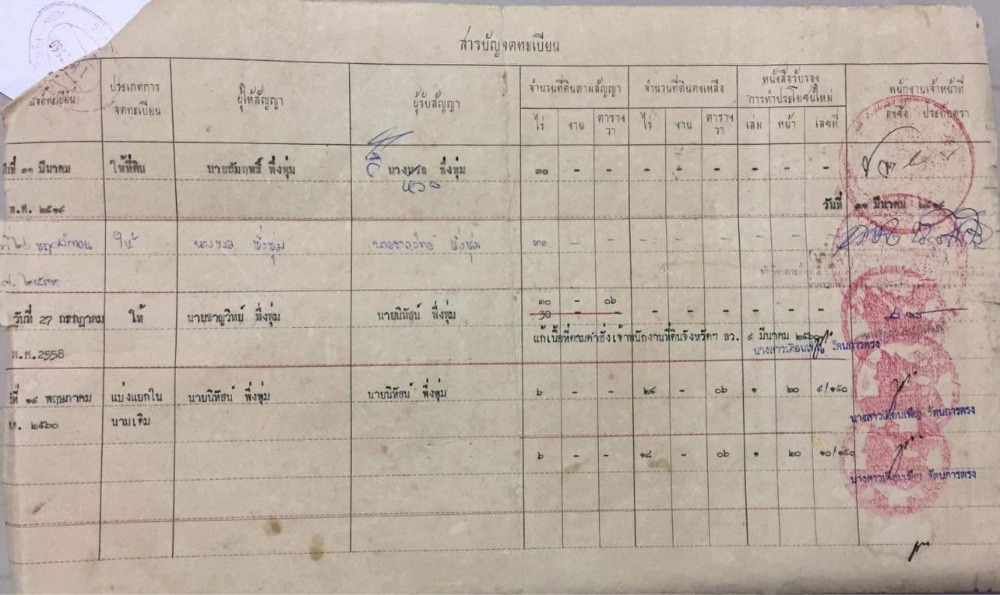 สารบัญจดทะเบียน
จดทะเบียน ประเภทการ จดทะเบียน ผู้ให้สัญญา ผู้รับสัญญา จำนวนที่ดินตามสัญญา จำนวนที่ดินคงเหลือ หนังสือรับรอง การทำประโยชน์ใหม่ พนักงานเจ้าหน้าที่
ไร่ งาน ตาราง วา ไร่ งาน ตาราง วา เล่ม หน้า เลขที่ ลงชื่อ ประทับตรา
วันที่ ๑๑ มีนาคม ให้ที่ดิน นายสัมฤทธิ์ พึ่งพุ่ม พึ่งพุ่ม ๓๐ - - - - - - - -
พ.ศ. ๒๕๑๙ วันที่ ๑๑ มีนาคม ๒๕๑๙
ให้ พึ่งพุ่ม นายชาญวิทย์ พึ่งพุ่ม ๓๐ - - - - - - - -
วันที่ 27 กรกฎาคม ให้ นายชาญวิทย์ พึ่งพุ่ม นายนิทัสน์ พึ่งพุ่ม ๓๐ - ๐๖ - - - - - -
30 - -
พ.ศ.2558 แก้เนื้อที่ตามคำสั่งเจ้าพนักงานที่ดินจังหวัดฯ ลว. ๙ มีนาคม ๒๕๖๐
นางสาวเดือนเพ็ญ รัตนการตรง
ที่ ๑๙ พฤษภาคม แบ่งแยกใน นายนิทัสน์ พึ่งพุ่ม นายนิทัสน์ พึ่งพุ่ม ๖ - - ๒๔ - ๐๖ ๑ ๒๐ ๙/๑๕๐
๒๕๖๐ นามเดิม นางสาวเดือนเพ็ญ รัตนการตรง
๖ - - ๑๘ - ๐๖ ๑ ๒๐ ๑๐/๑๕๐
นางสาวเดือนเพ็ญ รัตนการตรง